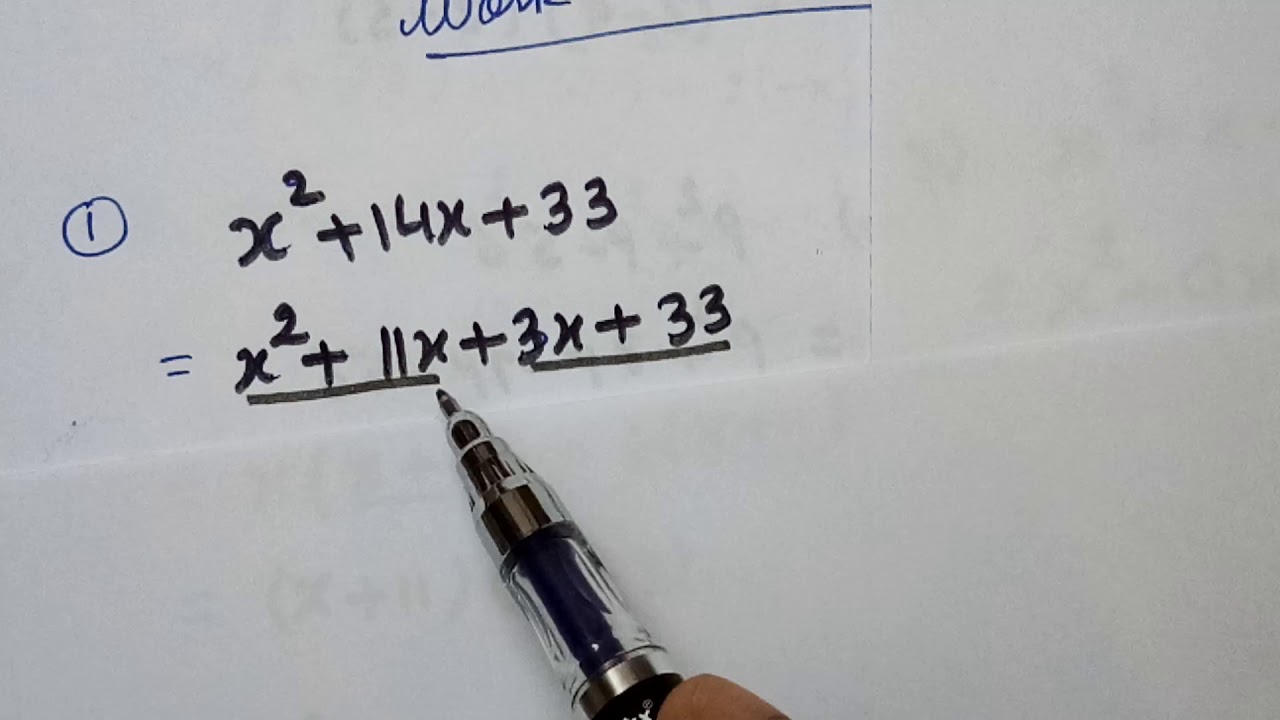 Work
① x² + 14x + 33
= x² + 11x + 3x + 33